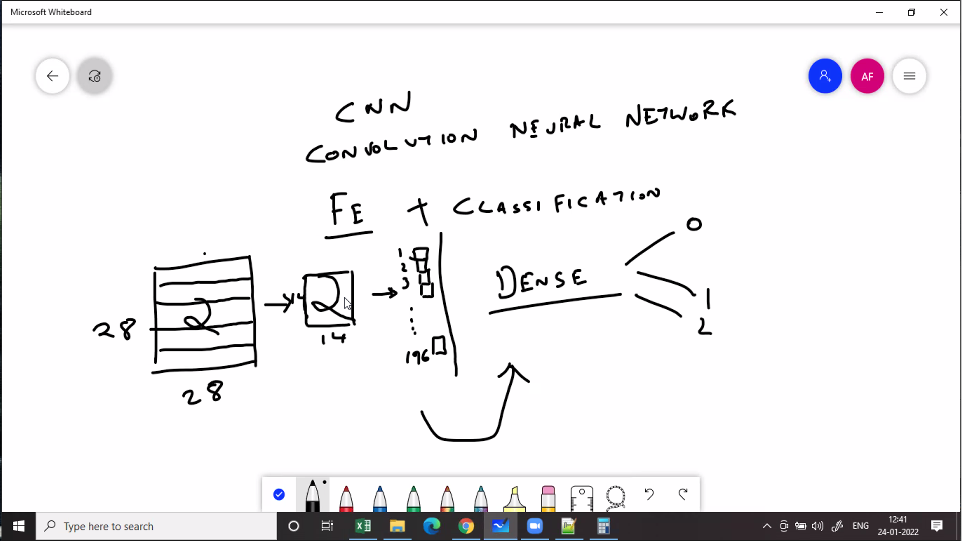 Microsoft Whiteboard
AF
CNN
CONVOLUTION NEURAL NETWORK
FE + CLASSIFICATION
28
28
2
14
14
2
1
2
3
196
DENSE
0
1
2
Type here to search
ENG
12:41
24-01-2022